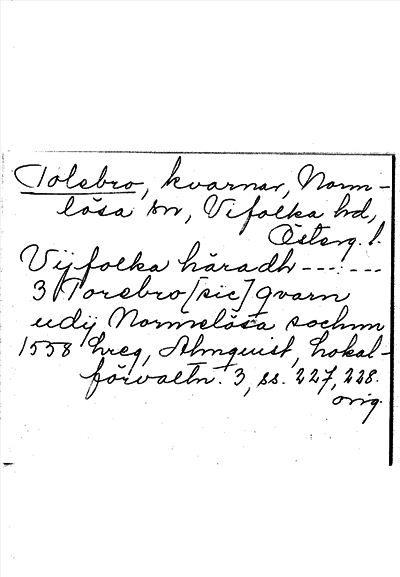 Tolebro, kvarnar, Norm-
lösa sn, Vifolka hd,
Österg. l.
Vijfolka häradh -------
3 Torebro [sic] qvarn
udij Normelösa sochnn
1558 hreg, Almquist, Lokal-
förvaltn. 3, ss. 227, 228.
orig.